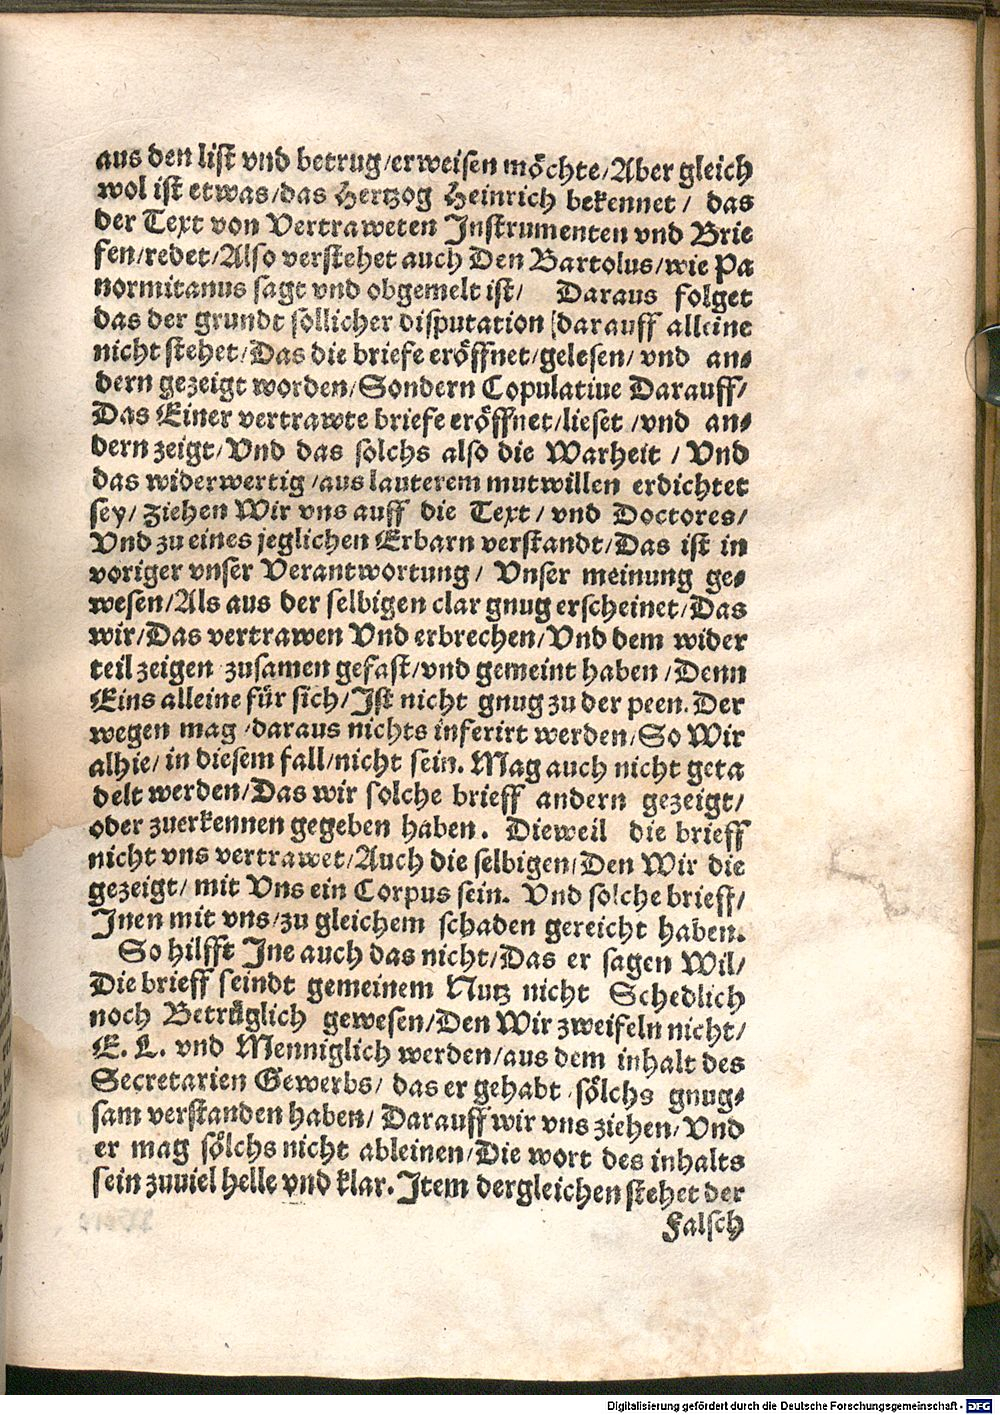 aus den list vnd betrug/erweisen möchte/Aber gleich
wol ist etwas/das Hertzog Heinrich bekennet/ das
der Text von Vertraweten Instrumenten vnd Brie
fen/redet/Also verstehet auch Den Bartolus/wie Pa
normitanus sagt vnd obgemelt ist/ Daraus folget
das der grundt sollicher disputation (darauff alleine
nicht stehet/Das die briefe eröffnet/gelesen/ vnd an⸗
dern gezeigt worden/Sondern Copulatiue Darauff/
Das Einer vertrawte briefe eröffnet/lieset /vnd an⸗
dern zeigt/Vnd das solchs also die Warheit / Vnd
das widerwertig /aus lauterem mutwillen erdichtet
sey/ Ziehen Wir vns auff die Text/ vnd Doctores/
Vnd zu eines jeglichen Erbarn verstandt/Das ist in
voriger vnser Verantwortung/ Vnser meinung ge⸗
wesen/Als aus der selbigen clar gnug erscheinet/Das
wir/Das vertrawen Vnd erbrechen/Vnd dem wider
teil zeigen zusamen gefast/vnd gemeint haben /Denn
Eins alleine für sich/Ist nicht gnug zu der peen. Der
wegen mag /daraus nichts inferirt werden/So Wir
alhie/ in diesem fall/nicht sein. Mag auch nicht geta
delt werden/Das wir solche brieff andern gezeigt/
oder zuerkennen gegeben haben. Dieweil die brieff
nicht vns vertrawet/Auch die selbigen/Den Wir die
gezeigt/ mit Vns ein Corpus sein. Vnd solche brieff/
Inen mit vns/zu gleichem schaden gereicht haben.
So hilfft Ine auch das nicht/Das er sagen Wil/
Die brieff seindt gemeinem Nutz nicht Schedlich
noch Betrüglich gewesen/Den Wir zweifeln nicht/
E. L. vnd Menniglich werden/aus dem inhalt des
Secretarien Gewerbs/ das er gehabt /sölchs gnug⸗
sam verstanden haben/ Darauff wir vns ziehen/ Vnd
er mag sölchs nicht ableinen/Die wort des inhalts
sein zuuiel helle vnd klar. Item dergleichen stehet der
Falsch
Digitalisierung gefördert durch die Deutsche Forschungsgemeinschaft - DFG